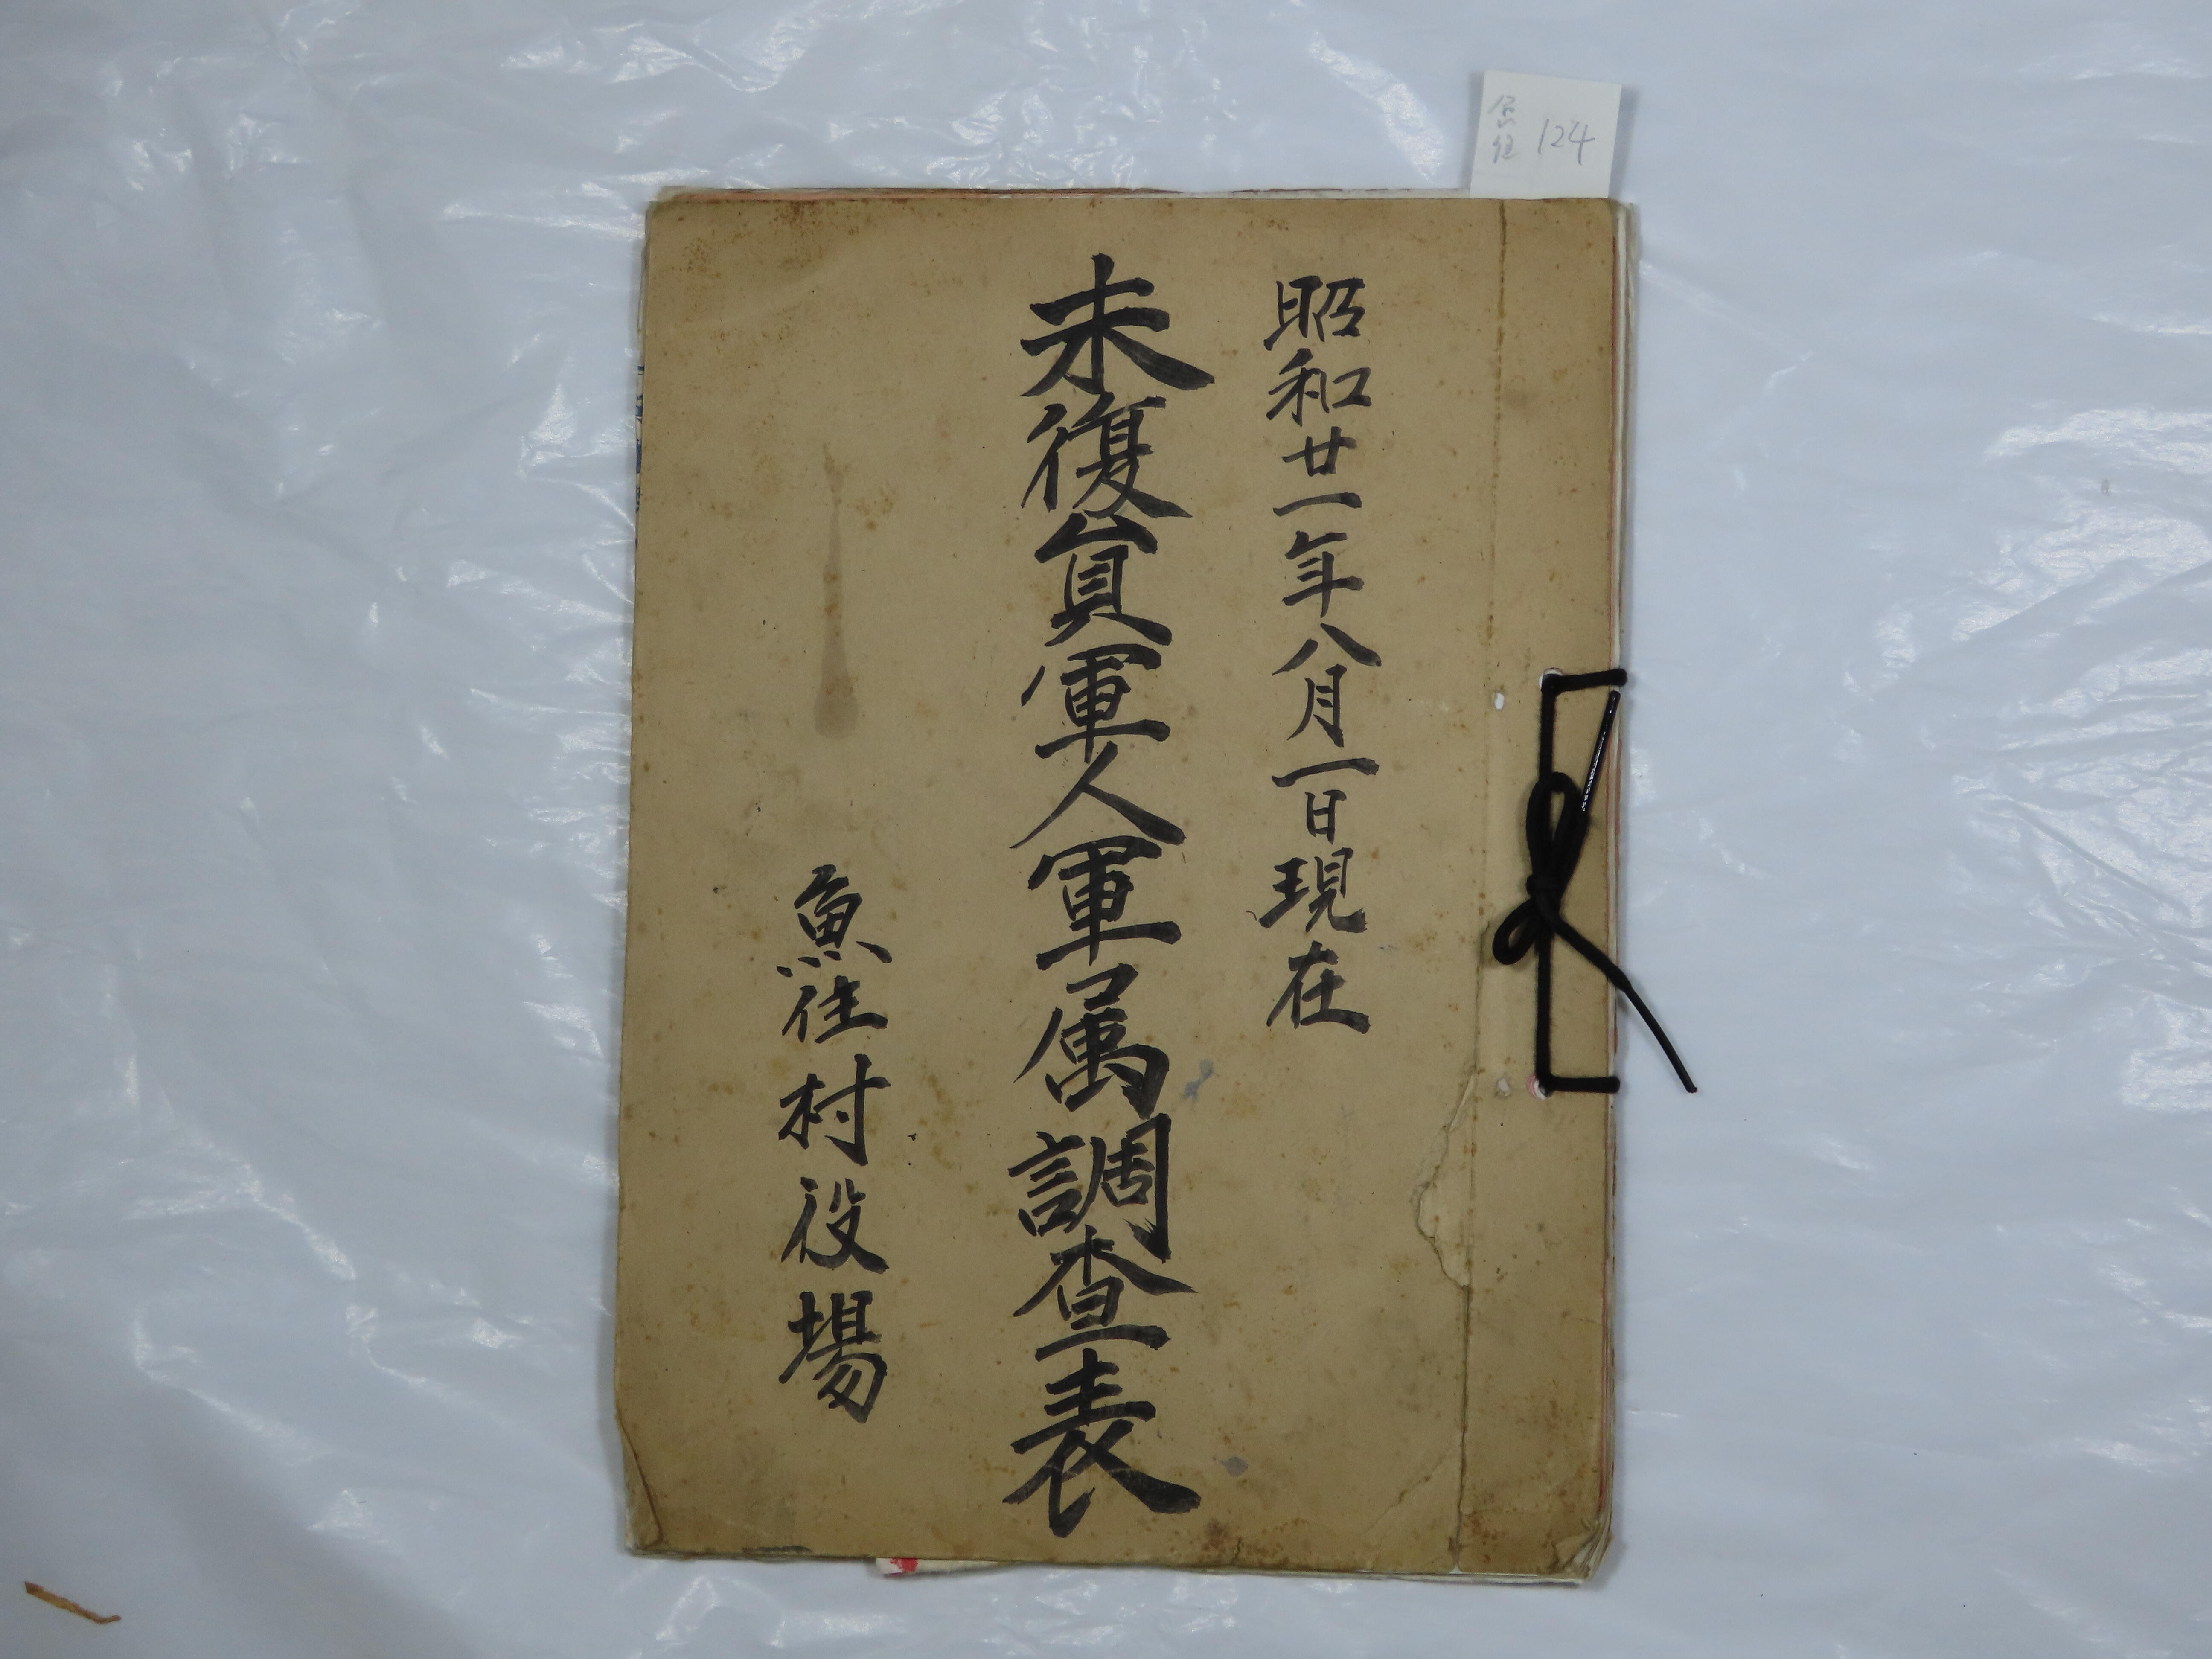 魚住 124
昭和廿一年八月一日現在
未復員軍人軍属調査表
魚住村役場